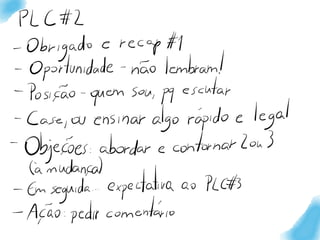 PLC#2
- Obrigado e recap #1
- Oportunidade - não lembram!
- Posição - quem sou, pq escutar
- Case, ou ensinar algo rápido e legal
- Objeções: abordar e contornar 2 ou 3
(à mudança)
- Em seguida... expectativa ao PLC#3
- Ação: pedir comentário